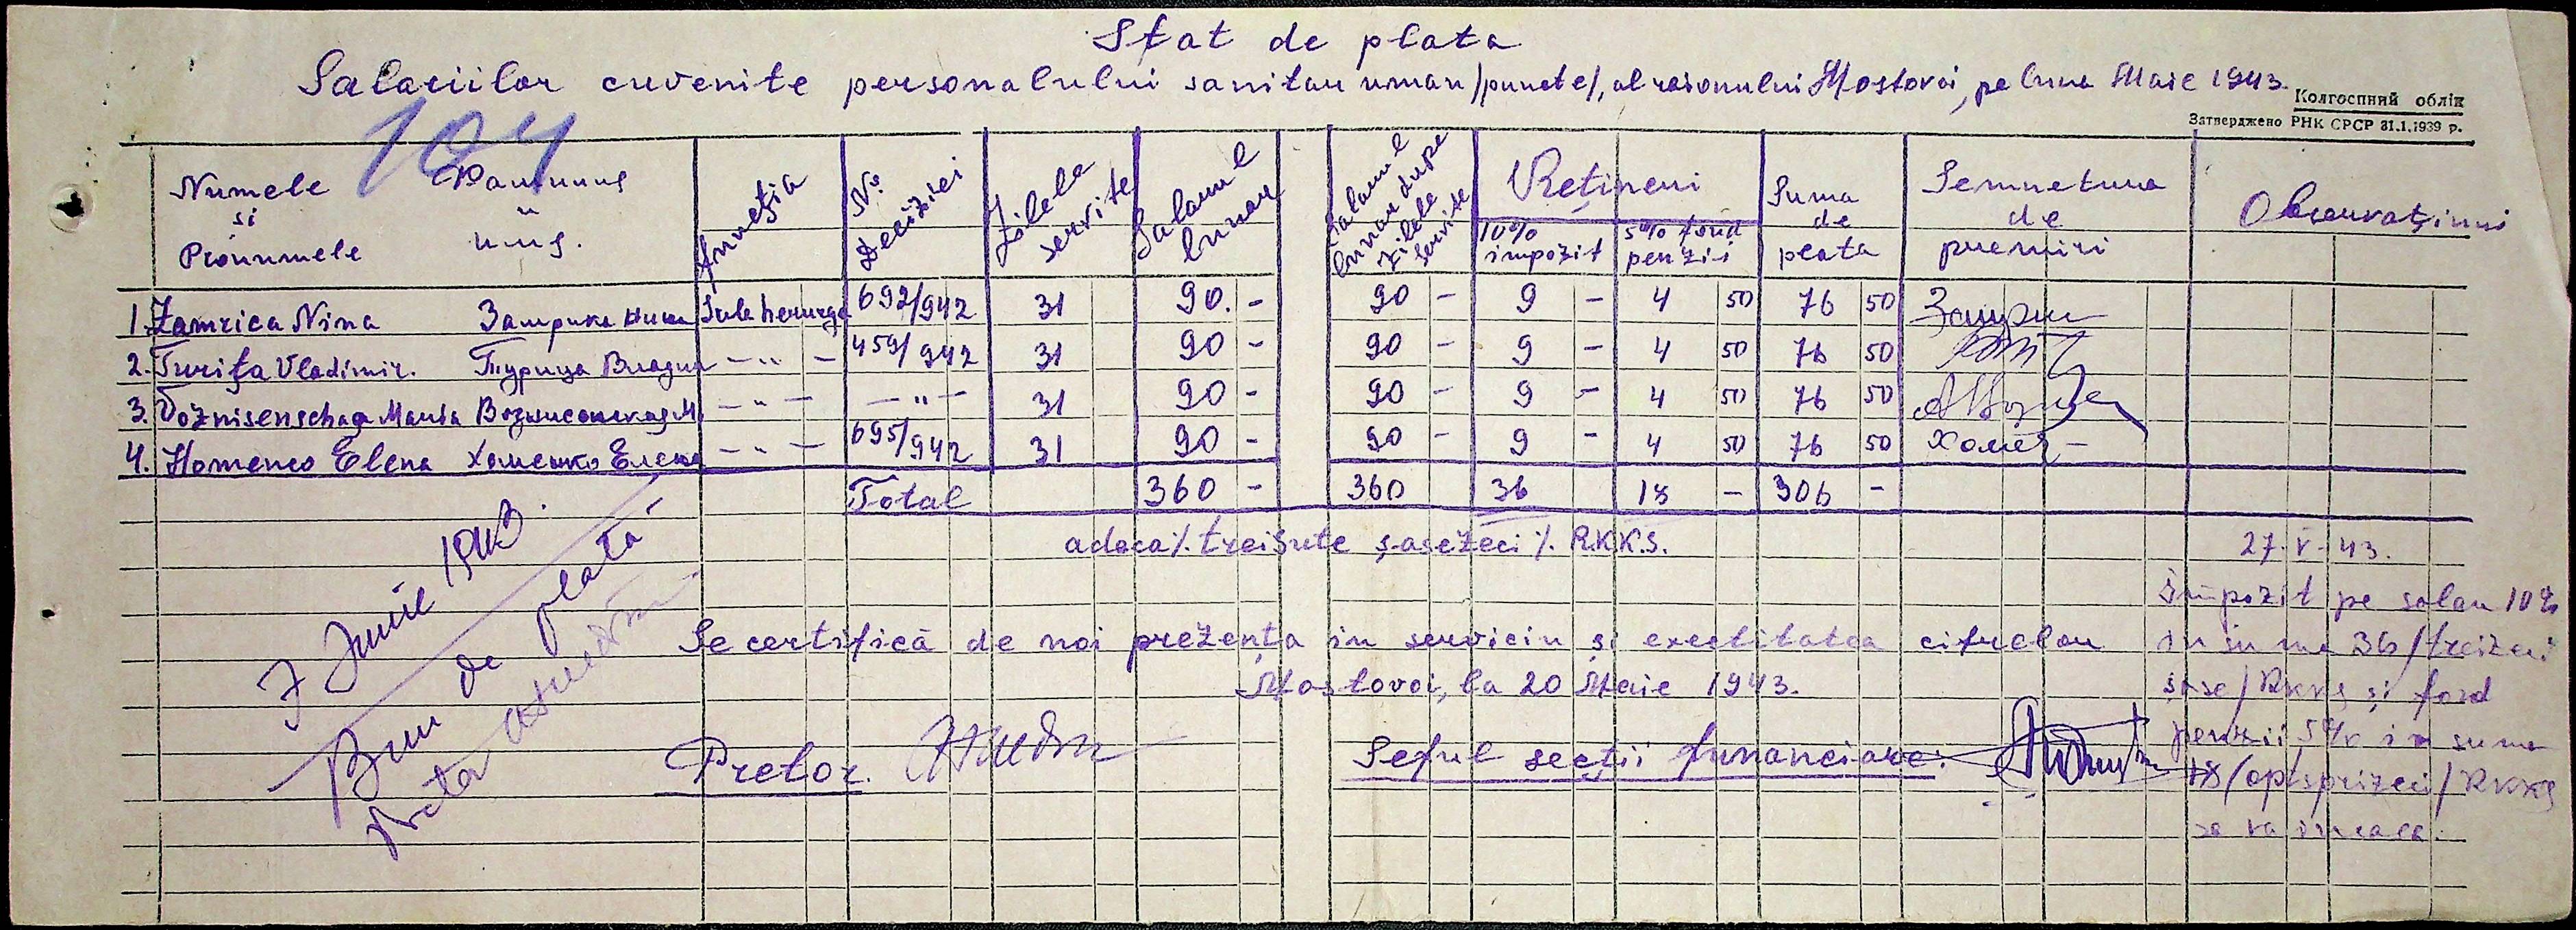 Stat de plata
Salariilor cuvenite personalului sanitar uman /puncte/, al raionului Mostovoi, pe luna Maie 1943.
Колгоспний облік
Затверджено РНК СРСР 31.1.1939 р.
104
Numele si Pronumele
Funcția
No Deciziei
Zilele servite
Salariul lunar
Salariul lunar dupa zilele servite
Rețineri
10% impozit
5% fond penzii
Suma de plata
Semnetura de premiri
Observațiuni
1. Zamrica Nina Замрика Нина 692/942 31 90. - 90 - 9 - 4 50 76 50
2. Turița Vladimir. Турица Владим - " - 459/942 31 90 - 90 - 9 - 4 50 76 50
3. Voznisenschaa Maria Вознисенская М. - " - - " - 31 90 - 90 - 9 - 4 50 76 50
4. Homenco Elena Хоменко Елена - " - 695/942 31 90 - 90 - 9 - 4 50 76 50 Хомен-
Total 360 - 360 36 18 - 306 -
adeca /. treisute șasezeci /. R.K.K.S.
27-V-43.
Impozit pe salar 10%
in suma 36 /treizeci
șase/ RKKS și fond
penzii 5% in suma
18 /optsprizeci/ RKKS
sa va incasa.
7 Iunie 1943.
Bun de plată
Se certifică de noi prezența in serviciu și exectitatea cifrelor
Mostovoi, la 20 Maie 1943.
Pretor.
Seful secții funanciare: